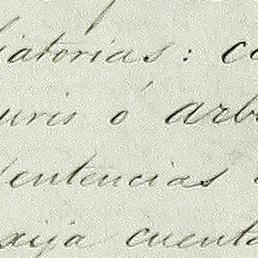 iatorias: co
uris ó arb
entencias
xija cuenta